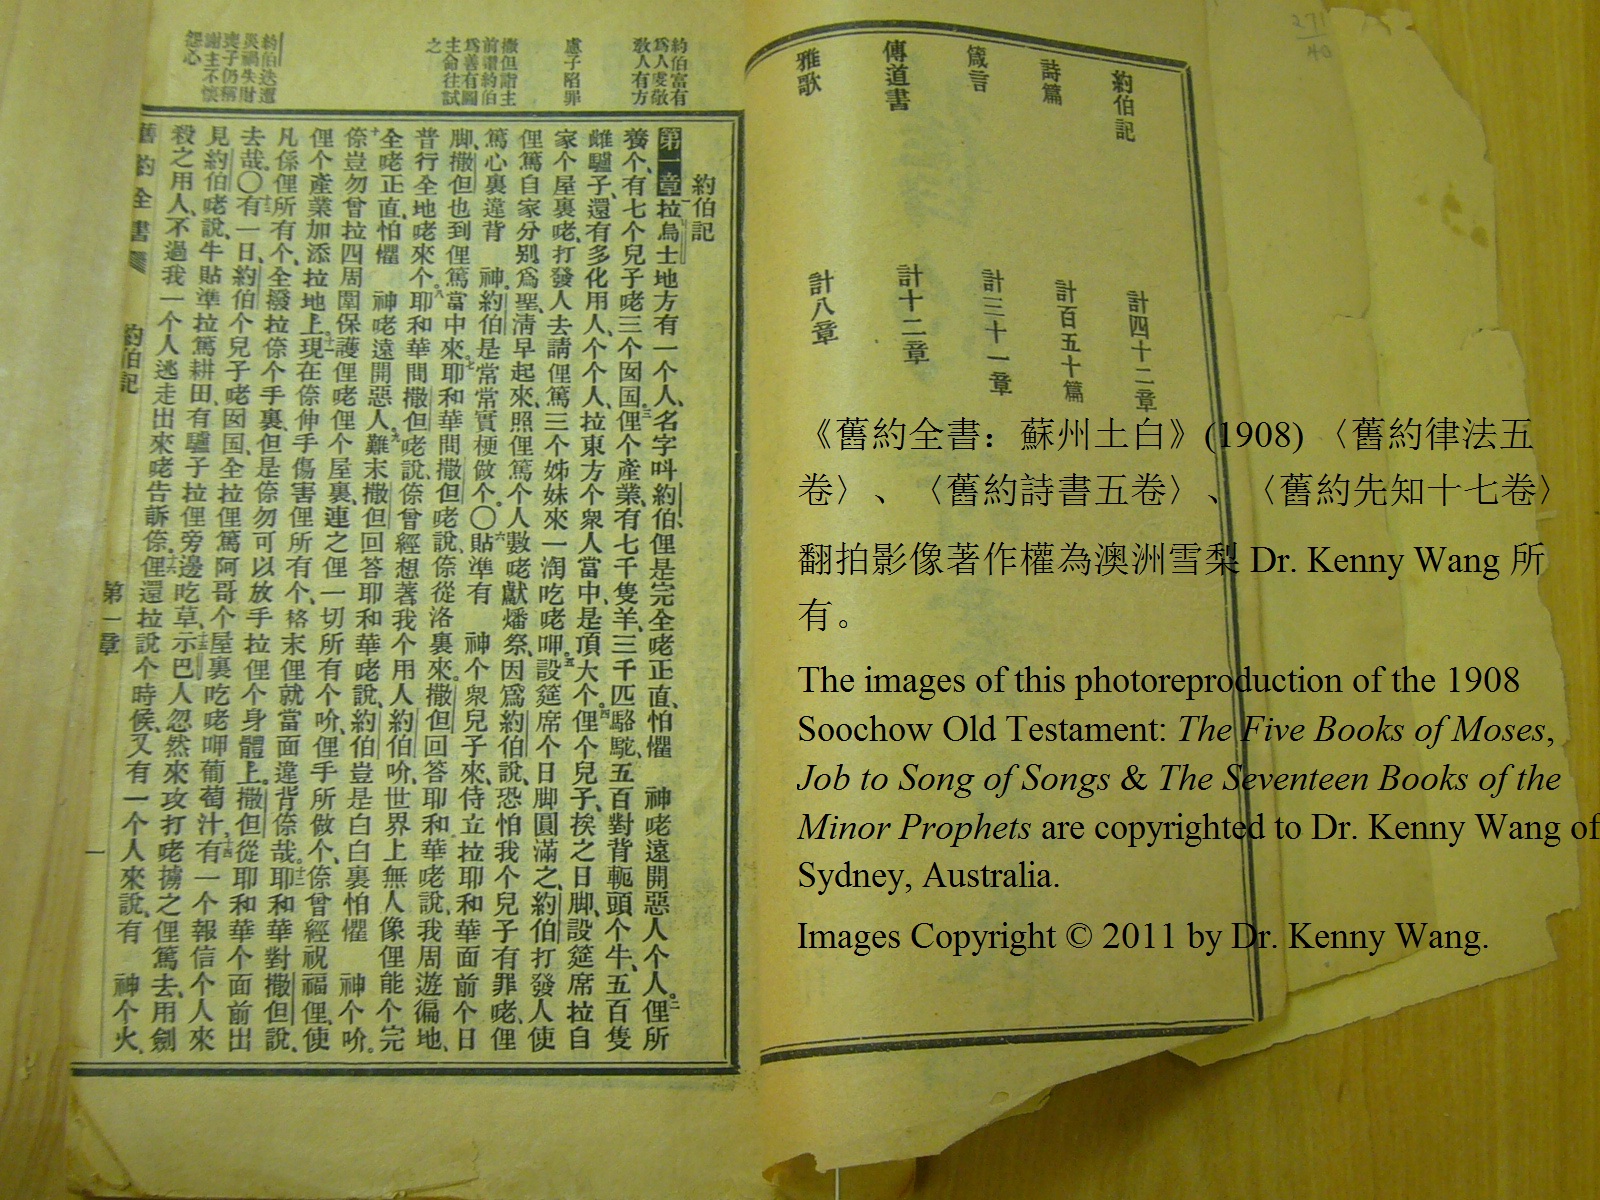 約伯記 計四十二章
詩篇 計百五十篇
箴言 計三十一章
傳道書 計十二章
雅歌 計八章
《舊約全書：蘇州土白》(1908) 〈舊約律法五
卷〉、〈舊約詩書五卷〉、〈舊約先知十七卷〉
翻拍影像著作權為澳洲雪梨 Dr. Kenny Wang 所
有。
The images of this photoreproduction of the 1908
Soochow Old Testament: The Five Books of Moses,
Job to Song of Songs & The Seventeen Books of the
Minor Prophets are copyrighted to Dr. Kenny Wang of
Sydney, Australia.
Images Copyright © 2011 by Dr. Kenny Wang.
約伯富有
爲人虔敬
敎人有方
慮子陷罪
撒但謂主
前讚約伯
爲善有圖
主命往試
之
約伯迭遭
災禍失財
喪子仍稱
謝主不懷
怨心
約伯記
第一章 一拉烏士地方有一个人、名字呌約伯、俚是完全咾正直、怕懼 神咾遠開惡人个人。二俚所
養个、有七个兒子咾三个囡囯。三俚个產業、有七千隻羊、三千匹駱駝、五百對背軛頭个牛、五百隻
雌驢子、還有多化用人、个个人、拉東方个衆人當中、是頂大个。四俚个兒子、挨之日脚、設筵席拉自
家个屋裏咾、打發人去請俚篤三个姊妹來一淘吃咾呷。五設筵席个日脚圓滿之、約伯打發人使
俚篤自家分别爲聖、淸早起來、照俚篤个人數咾獻燔祭、因爲約伯說、恐怕我个兒子有罪咾、俚
篤心裏違背 神、約伯是常常實梗做个。〇六貼準有 神个衆兒子來、侍立拉耶和華面前个日
脚、撒但也到俚篤當中來。七耶和華問撒但咾說、倷從洛裏來。撒但回答耶和華咾說、我周遊徧地、
普行全地咾來个。八耶和華問撒但咾說、倷曾經想著我个用人約伯吤、世界上無人像俚能个完
全咾正直、怕懼 神咾遠開惡人。九難末撒但回答耶和華咾說、約伯豈是白白裏怕懼 神个吤。
十倷豈勿曾拉四周圍保護俚咾俚个屋裏、連之俚一切所有个吤、俚手所做个、倷曾經祝福俚、使
俚个產業加添拉地上。十一現在倷伸手傷害俚所有个、格末俚就當面違背倷哉。十二耶和華對撒但說、
凡係俚所有个、全撥拉倷个手裏、但是倷勿可以放手拉俚个身體上。撒但從耶和華个面前出
去哉。〇十三有一日、約伯个兒子咾囡囯、全拉俚篤阿哥个屋裏吃咾呷葡萄汁、十四有一个報信个人來
見約伯咾說、牛貼準拉篤耕田、有驢子拉俚旁邊吃草、十五示巴人忽然來攻打咾擄之俚篤去、用劍
殺之用人、不過我一个人逃走出來咾告訴倷。十六俚還拉說个時候、又有一个人來說、有 神个火、
舊約全書 約伯記 第一章 一